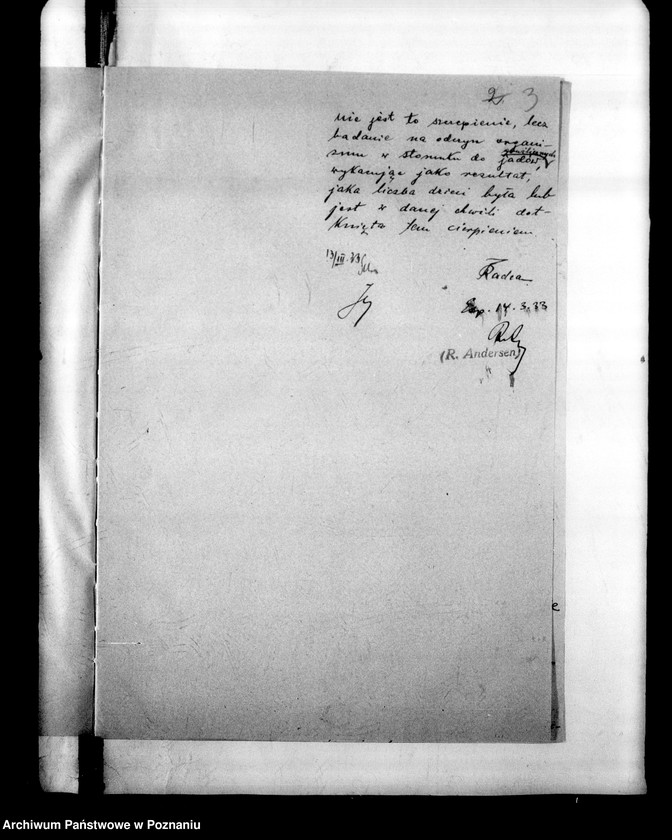 3
nie jest to szczepienie, lecz
badanie na odczyn organi-
zmu w stosunku do jadów,
wykazując jako rezultat,
jaka liczba dzieci była lub
jest w danej chwili dot-
knięta tem cierpieniem
13/III.33
Radca
Exp. 14.3.33
(R. Andersen)
Archiwum Państwowe w Poznaniu